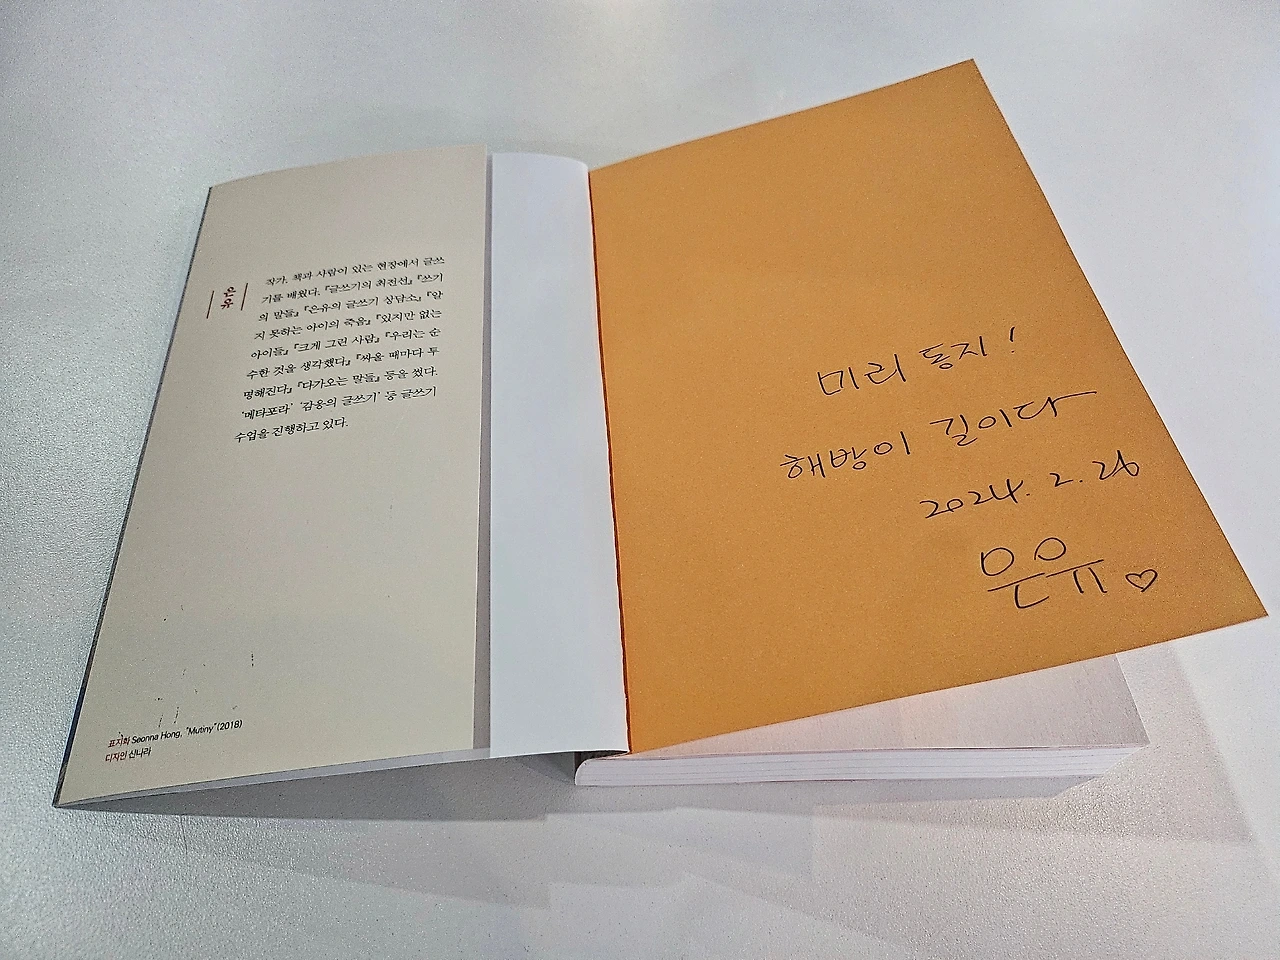 은유
작가. 책과 사람이 있는 현장에서 글쓰
기를 배웠다. 『글쓰기의 최전선』 『쓰기
의 말들』 『은유의 글쓰기 상담소』 『알
지 못하는 아이의 죽음』 『있지만 없는
아이들』 『크게 그린 사람』 『우리는 순
수한 것을 생각했다』 『싸울 때마다 투
명해진다』 『다가오는 말들』 등을 썼다.
'메타포라' '감응의 글쓰기' 등 글쓰기
수업을 진행하고 있다.
표지화 Seonna Hong, "Mutiny"(2018)
디자인 신나라
미리 동지!
해방이 길이다
2024. 2. 26
은유♡